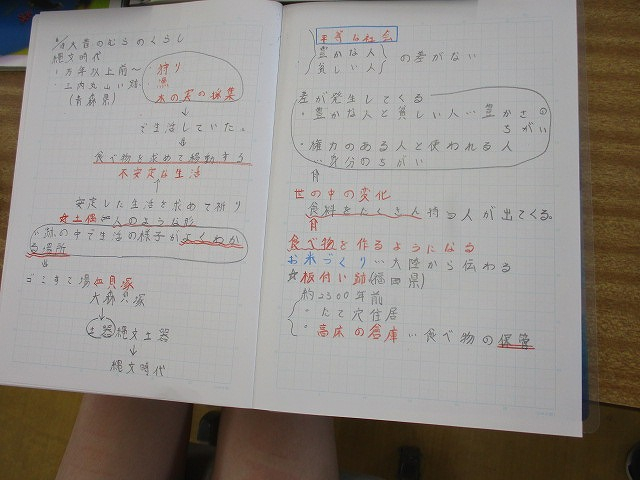 大昔のむらのくらし
縄文時代
・一万年以上前〜
・三内丸山い跡
(青森県)
狩り
漁
木の実の採集
↓
で生活していた。
⇓
食べ物を求めて移動する
不安定な生活
↑
安定した生活を求めて祈り
☆土偶…人のような形
い跡の中で生活の様子がよくわか
る場所
⇓
ゴミすて場=貝塚
大森貝塚
↓
土器 縄文土器
↓
縄文時代
平等な社会
豊かな人
貧しい人
の差がない
差が発生してくる
・豊かな人と貧しい人…豊かさの
ちがい
・権力のある人と使われる人
…身分のちがい
⇑
世の中の変化
食料をたくさん持つ人が出てくる。
⇑
食べ物を作るようになる
お米づくり…大陸から伝わる
☆板付い跡(福岡県)
約2300年前
・たて穴住居
・高床の倉庫…食べ物の保管